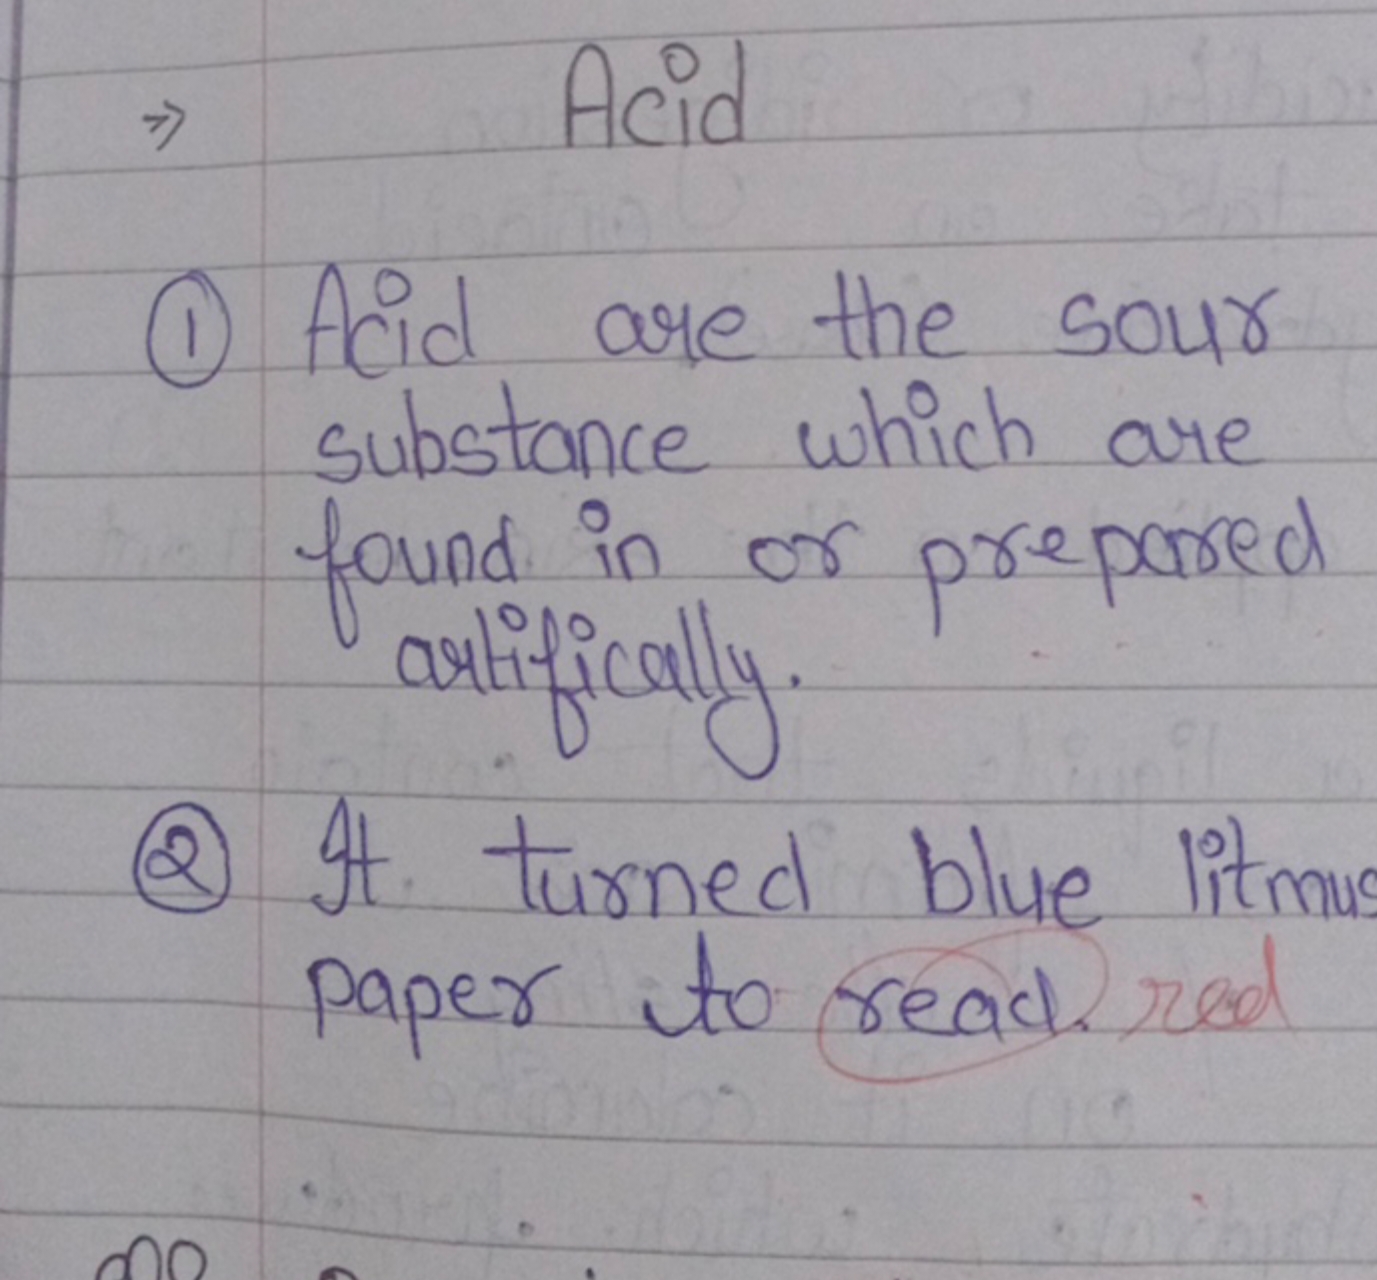 ⇒ Acid
① Acid are the sour
substance which are
found in or prepared
artifically.
② It turned blue litmus
paper to read. red